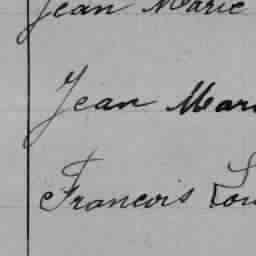 Jean Marie
Jean Mari
Francois Lou